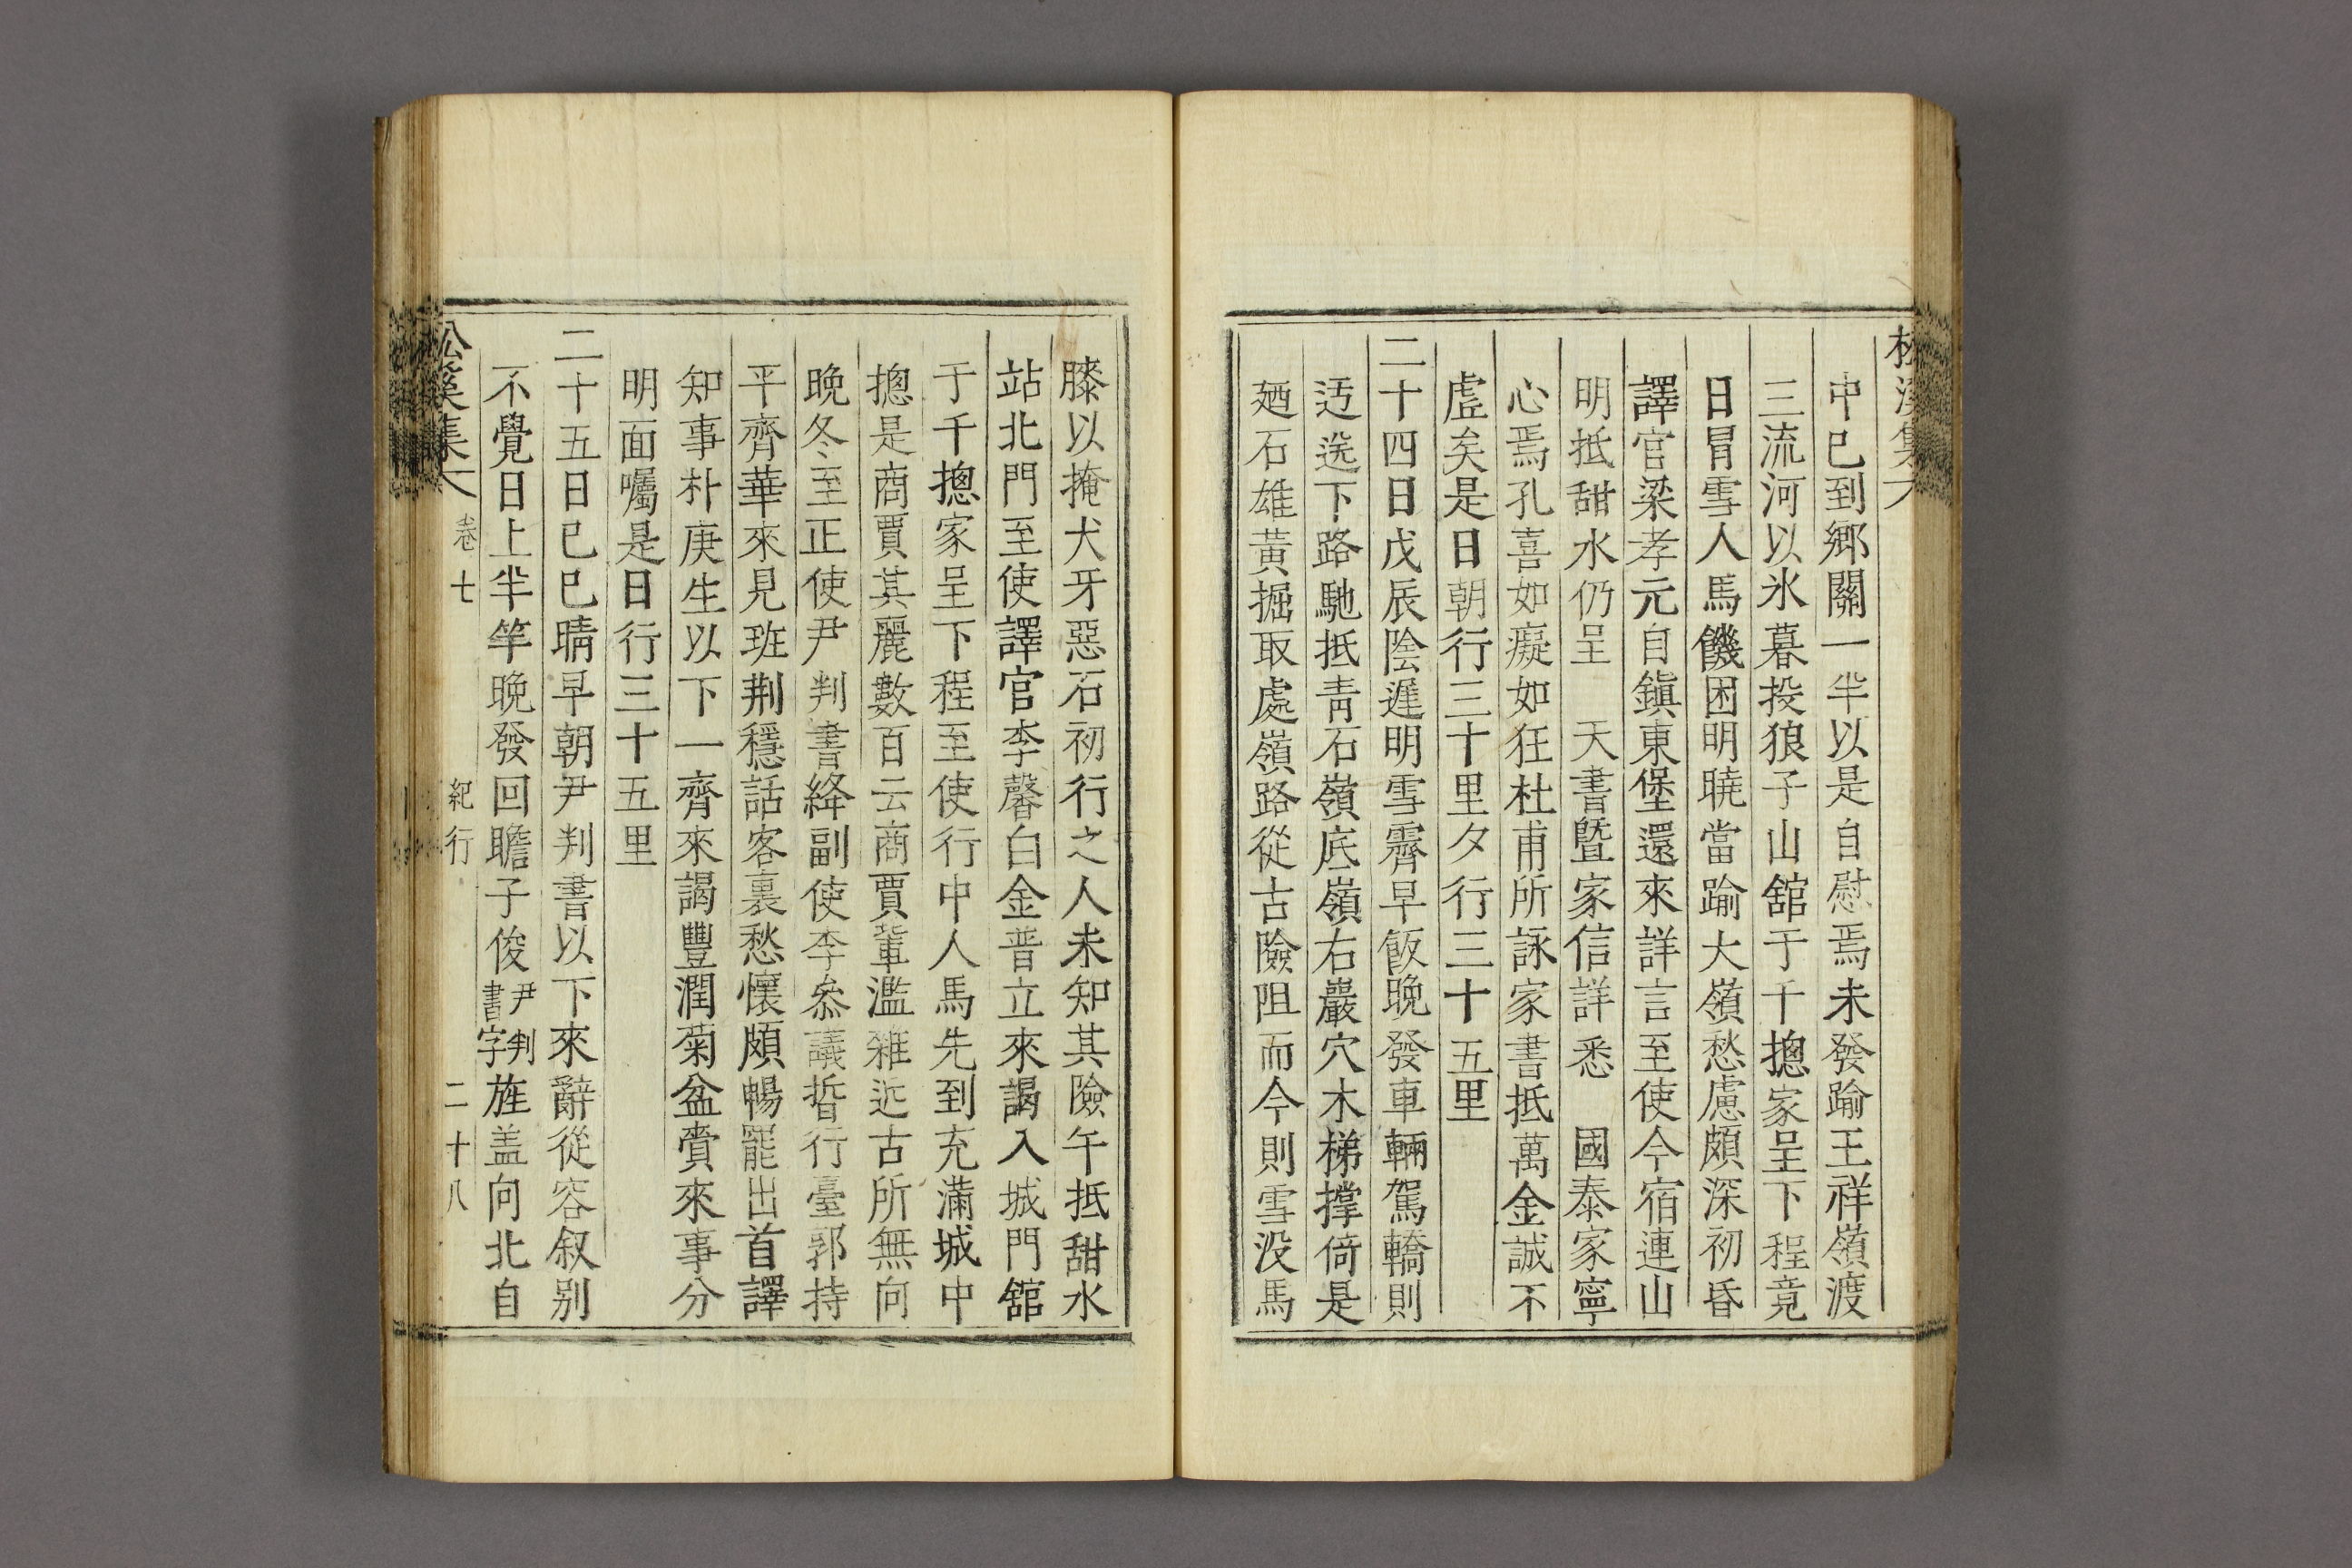 中已到鄉關一半以是自慰焉未發踰王祥嶺渡
三流河以氷暮投狼子山舘于千摠家呈下程竟
日冒雪人馬饑困明曉當踰大嶺愁慮頗深初昏
譯官梁孝元自鎭東堡還來詳言至使今宿連山
明抵甜水仍呈　天書曁家信詳悉　國泰家寧
心焉孔喜如癡如狂杜甫所詠家書抵萬金誠不
虛矣是日朝行三十里夕行三十五里
二十四日戊辰陰遲明雪霽早飯晩發車輛駕轎則
迃迻下路馳抵靑石嶺底嶺右巖穴木梯撑倚是
廼石雄黃掘取處嶺路從古險阻而今則雪没馬
膝以掩犬牙惡石初行之人未知其險午抵甜水
站北門至使譯官李馨白金普立來謁入城門舘
于千摠家呈下程至使行中人馬先到充滿城中
摠是商賈其麗數百云商賈軰濫雜近古所無向
晩冬至正使尹判書絳副使李叅議晳行臺郭持
平齊華來見班荆穩話客裏愁懷頗暢罷出首譯
知事朴庚生以下一齊來謁豐潤菊盆賫來事分
明面囑是日行三十五里
二十五日己巳晴早朝尹判書以下來辭從容叙别
不覺日上半竿晩發回瞻子俊尹判書字旌盖向北自
松溪集 卷七 紀行 二十八